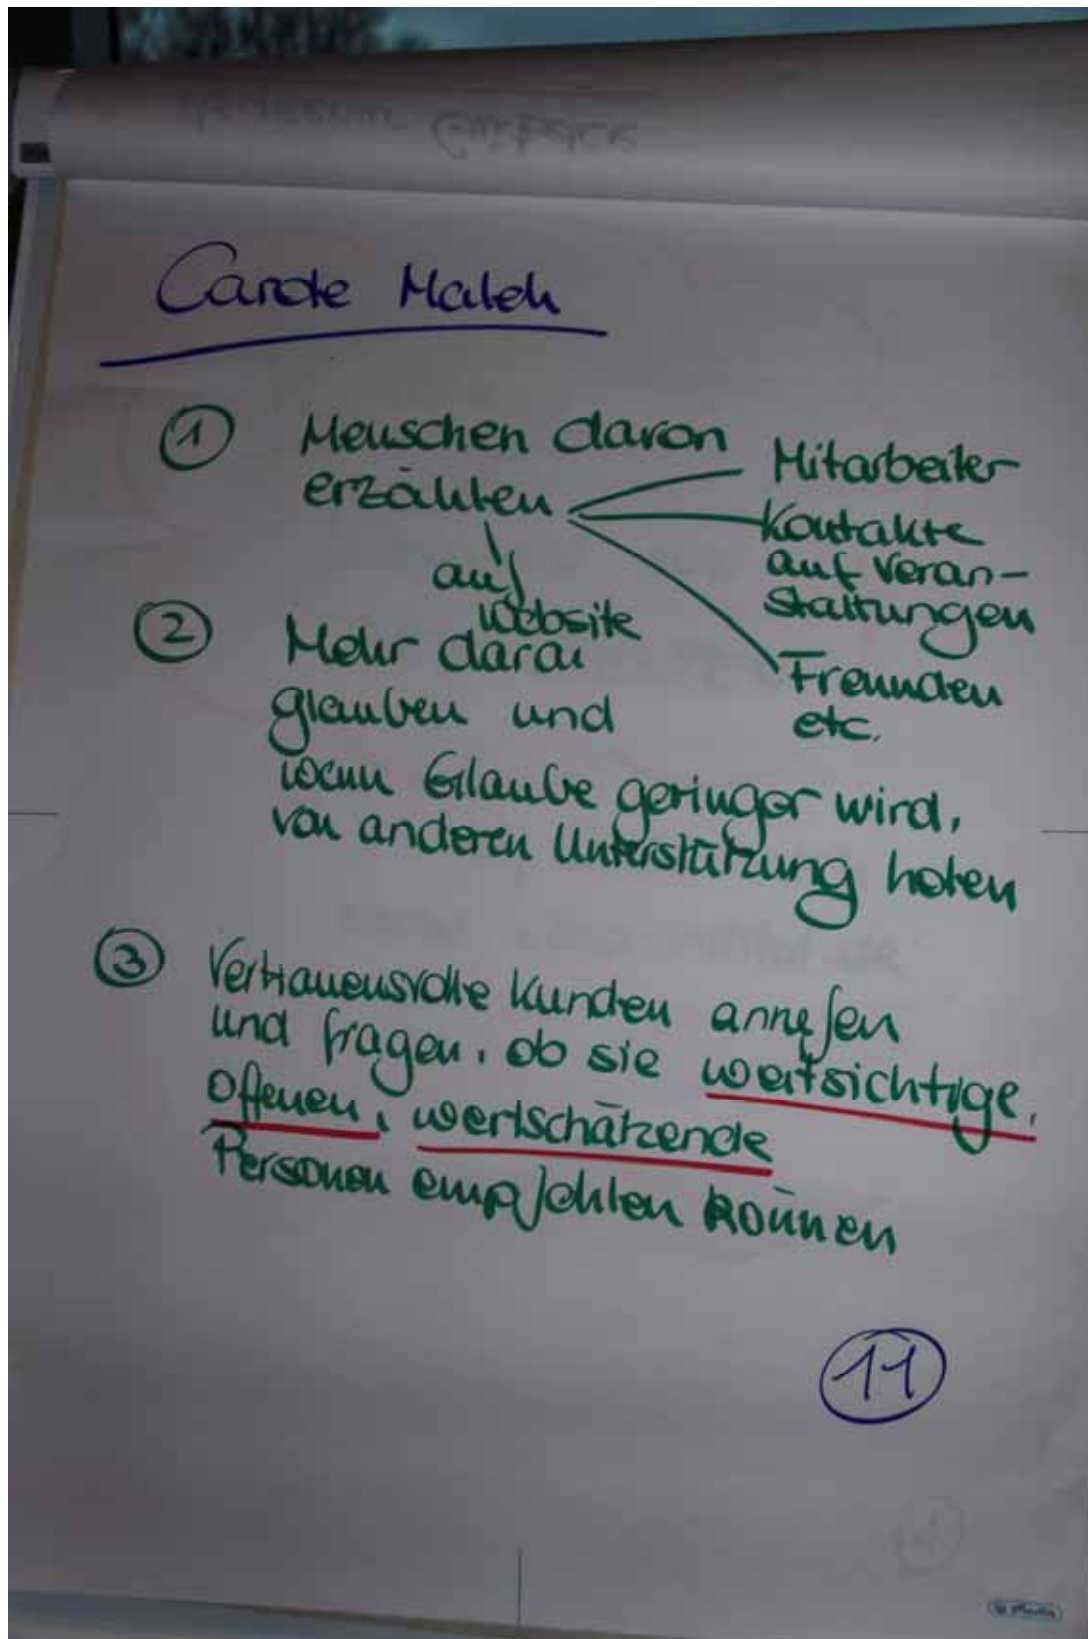 Carole Maleh
① Menschen davon
erzählen
auf
Website
Mitarbeiter
Kontakte
auf Veran-
staltungen
Freunden
etc.
② Mehr daran
glauben und
wenn Glaube geringer wird,
von anderen Unterstützung holen
③ Vertrauensvolle Kunden anrufen
und fragen, ob sie weitsichtige,
offenen, wertschätzende
Personen empfehlen können
11